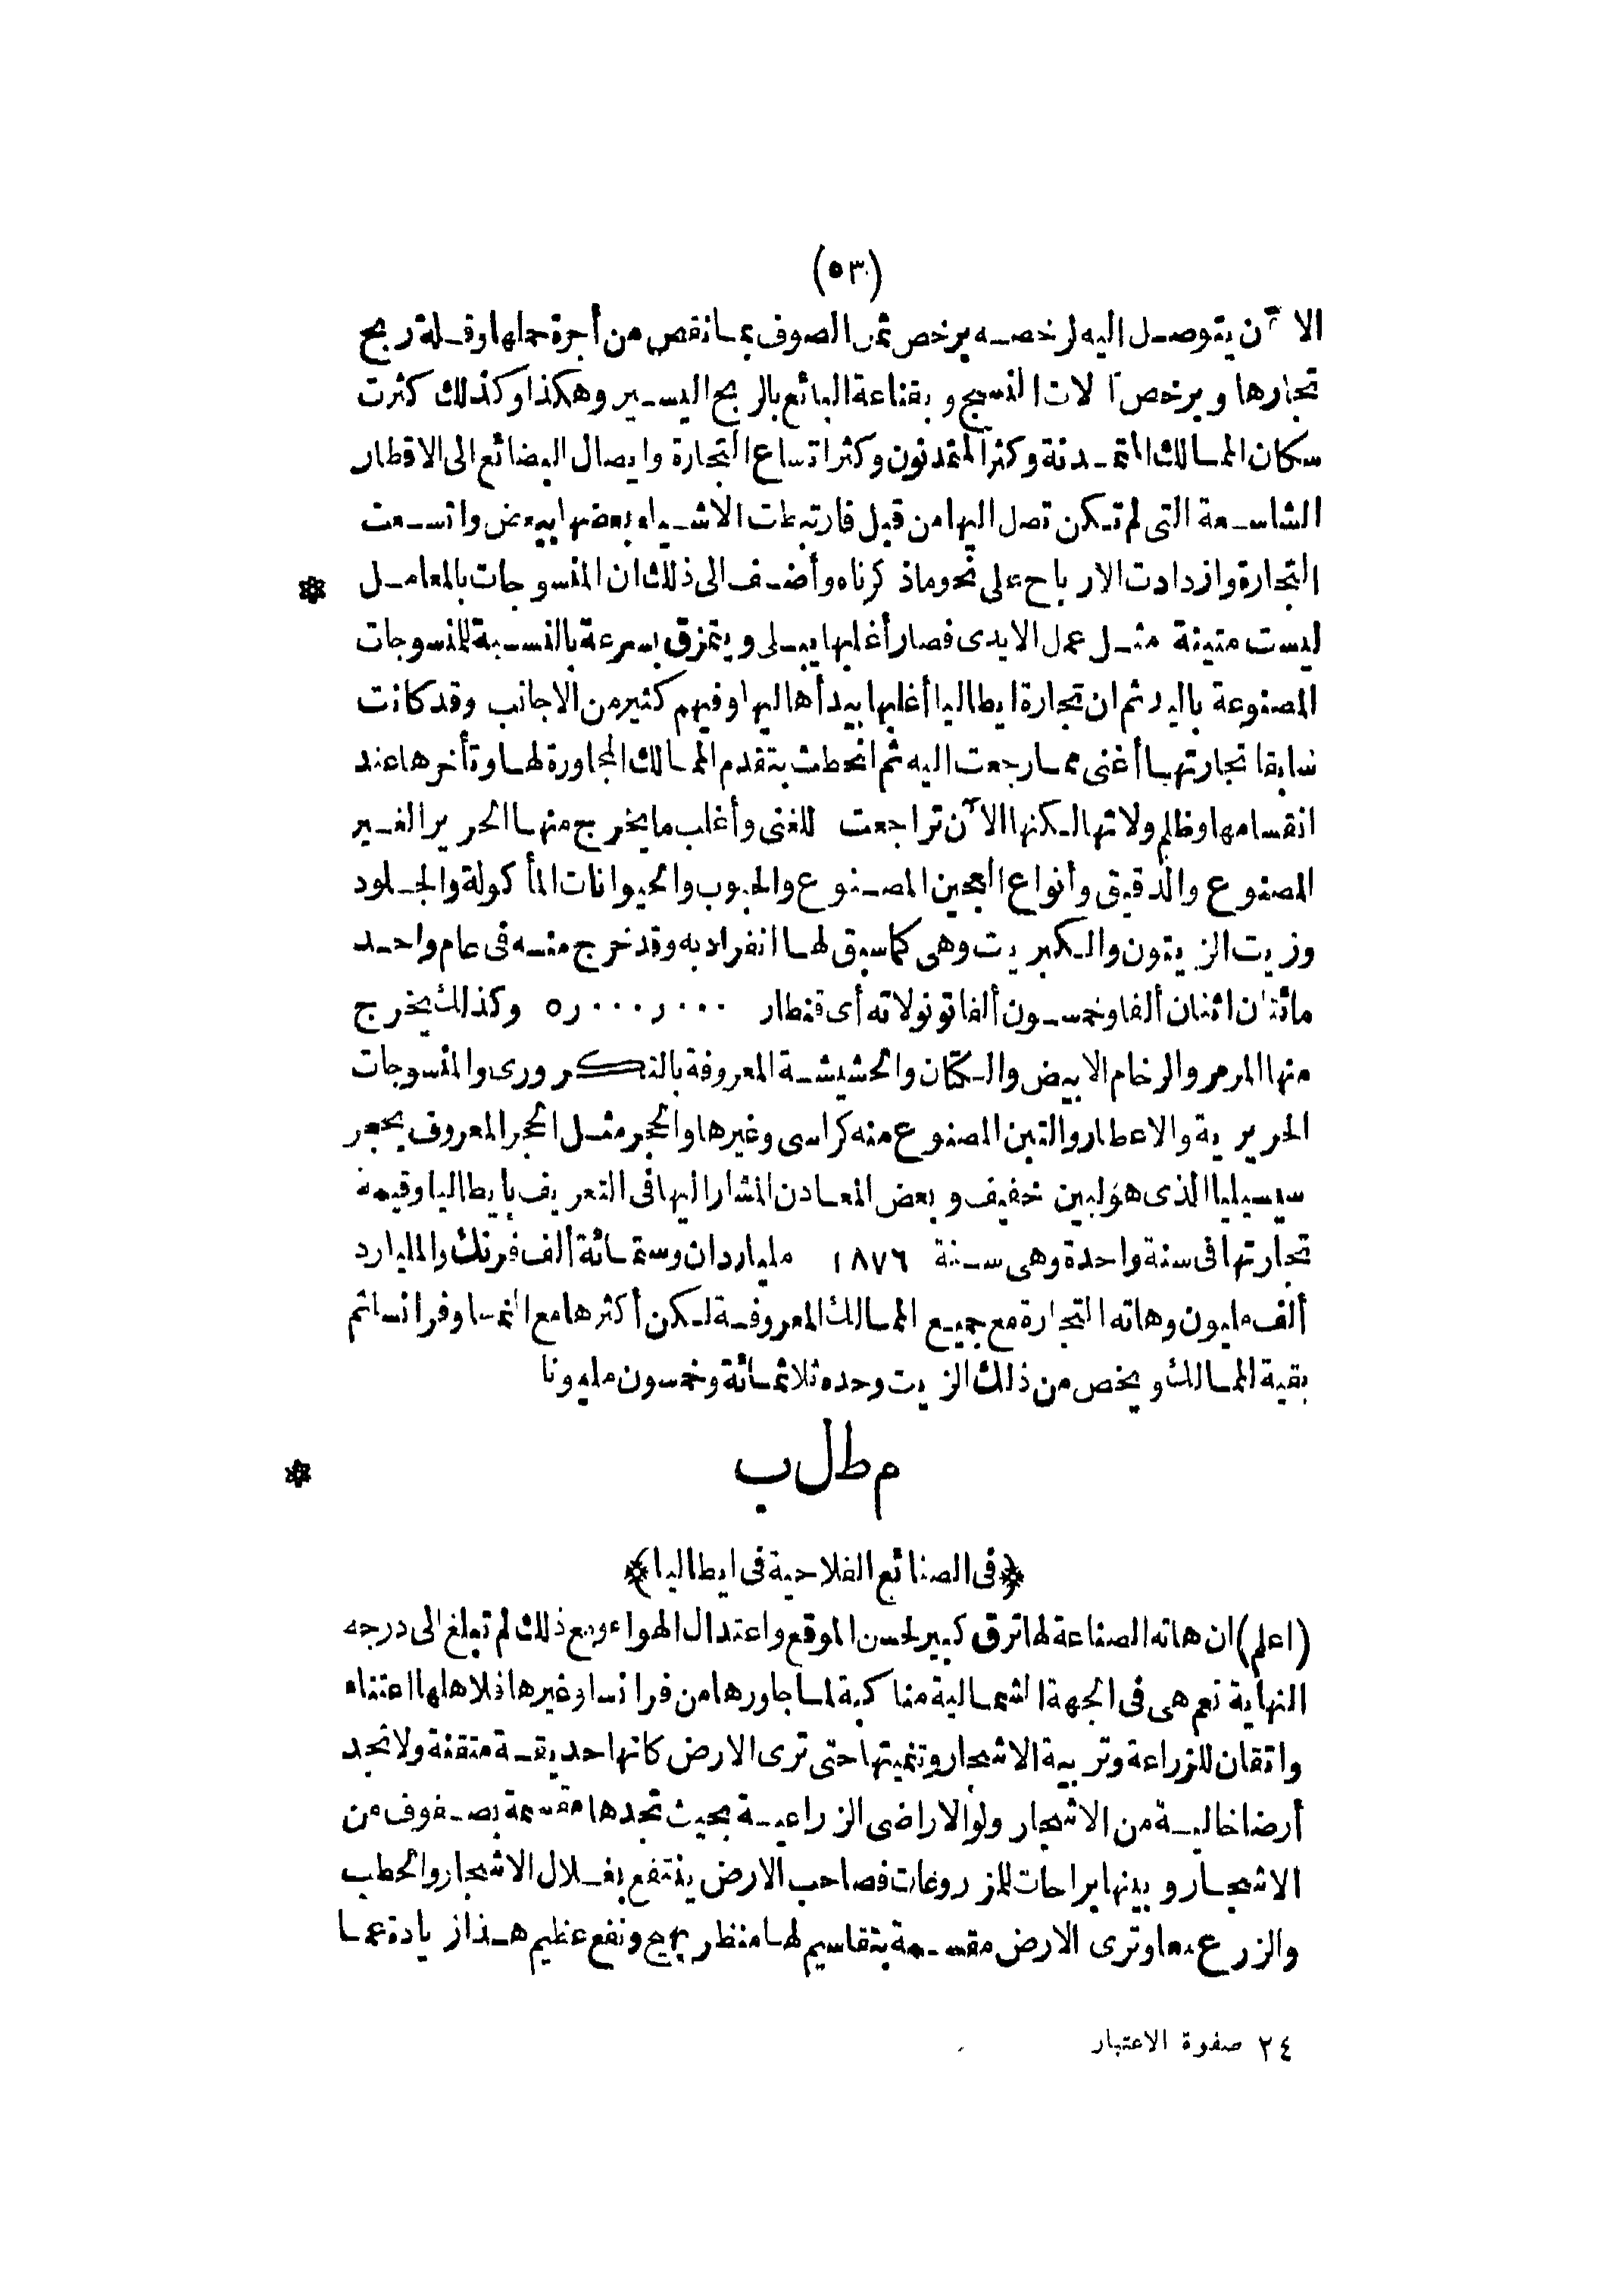 (٥٣)
الآن يتوصل اليه لرخصه برخص ثمن الصوف بما نقص من أجرة حملها وقلة ربح
تجارها وبرخص آلات النسيج وبقناعة البائع بالربح اليسير وهكذا وكذلك كثرت
سكان الممالك المتمدنة وكثر المتمدنون وكثر اتساع التجارة وايصال البضائع الى الاقطار
الشاسعة التى لم تكن تصل اليها من قبل فارتبطت الاشياء بعضها ببعض واتسعت
التجارة وازدادت الارباح على نحو ماذكرناه وأضف الى ذلك ان المنسوجات بالمعامل *
ليست متينة مثل عمل الايدى فصار أغلبها يبلى ويتمزق بسرعة بالنسبة للمنسوجات
المصنوعة باليد ثم ان تجارة ايطاليا أغلبها بيد أهاليها وفيهم كثير من الاجانب وقد كانت
سابقا تجارتها أغنى مما رجعت اليه ثم انحطت بتقدم الممالك المجاورة لها وتأخرها عند
انقسامها وظلم ولاتها لكنها الآن تراجعت للغنى وأغلب ما يخرج منها الحرير الغير
المصنوع والدقيق وأنواع العجين المصنوع والحبوب والحيوانات المأكولة والجلود
وزيت الزيتون والكبريت وهى كما سبق لها انفراد به وقد خرج منه فى عام واحد
مائتان اثنان ألفا وخمسون ألفا تونولاته أى قنطار ٥ر٠٠٠ر٠٠٠ وكذلك يخرج
منها المرمر والرخام الابيض والكتان والحشيشة المعروفة بالتكرورى والمنسوجات
الحريرية والاعطار والتبن المصنوع منه كراسى وغيرها والحجر مثل الحجر المعروف بحجر
سيسيليا الذى هو لبين خفيف وبعض المعادن المشار اليها فى التعريف بايطاليا وقيمة
تجارتها فى سنة واحدة وهى سنة ١٨٧٦ ملياردان وستمائة ألف فرنك والمليارد
ألف مليون وهاته التجارة مع جميع الممالك المعروفة لكن أكثرها مع النمسا وفرانسا ثم
بقية الممالك ويخص من ذلك الزيت وحده ثلاثمائة وخمسون مليونا
مطلب *
﴿فى الصنائع الفلاحية فى ايطاليا﴾
(اعلم) ان هاته الصناعة لها ترق كبير لحسن الموقع واعتدال الهواء ومع ذلك لم تبلغ الى درجه
النهاية نعم هى فى الجهة الشمالية مناكبة لما جاورها من فرانسا وغيرها اذ لاهلها اعتناء
واتقان للزراعة وتربية الاشجار وتنميتها حتى ترى الارض كانها حديقة متقنة ولا تجد
أرضا خالية من الاشجار ولو الاراضى الزراعية بحيث تجدها مقسمة بصفوف من
الاشجار وبينها براحات للمزروعات فصاحب الارض ينتفع بغلال الاشجار والحطب
والزرع معا وترى الارض مقسمة بتقاسيم لها منظر بهيج ونفع عظيم هذا زيادة عما
٢٤ صفوة الاعتبار